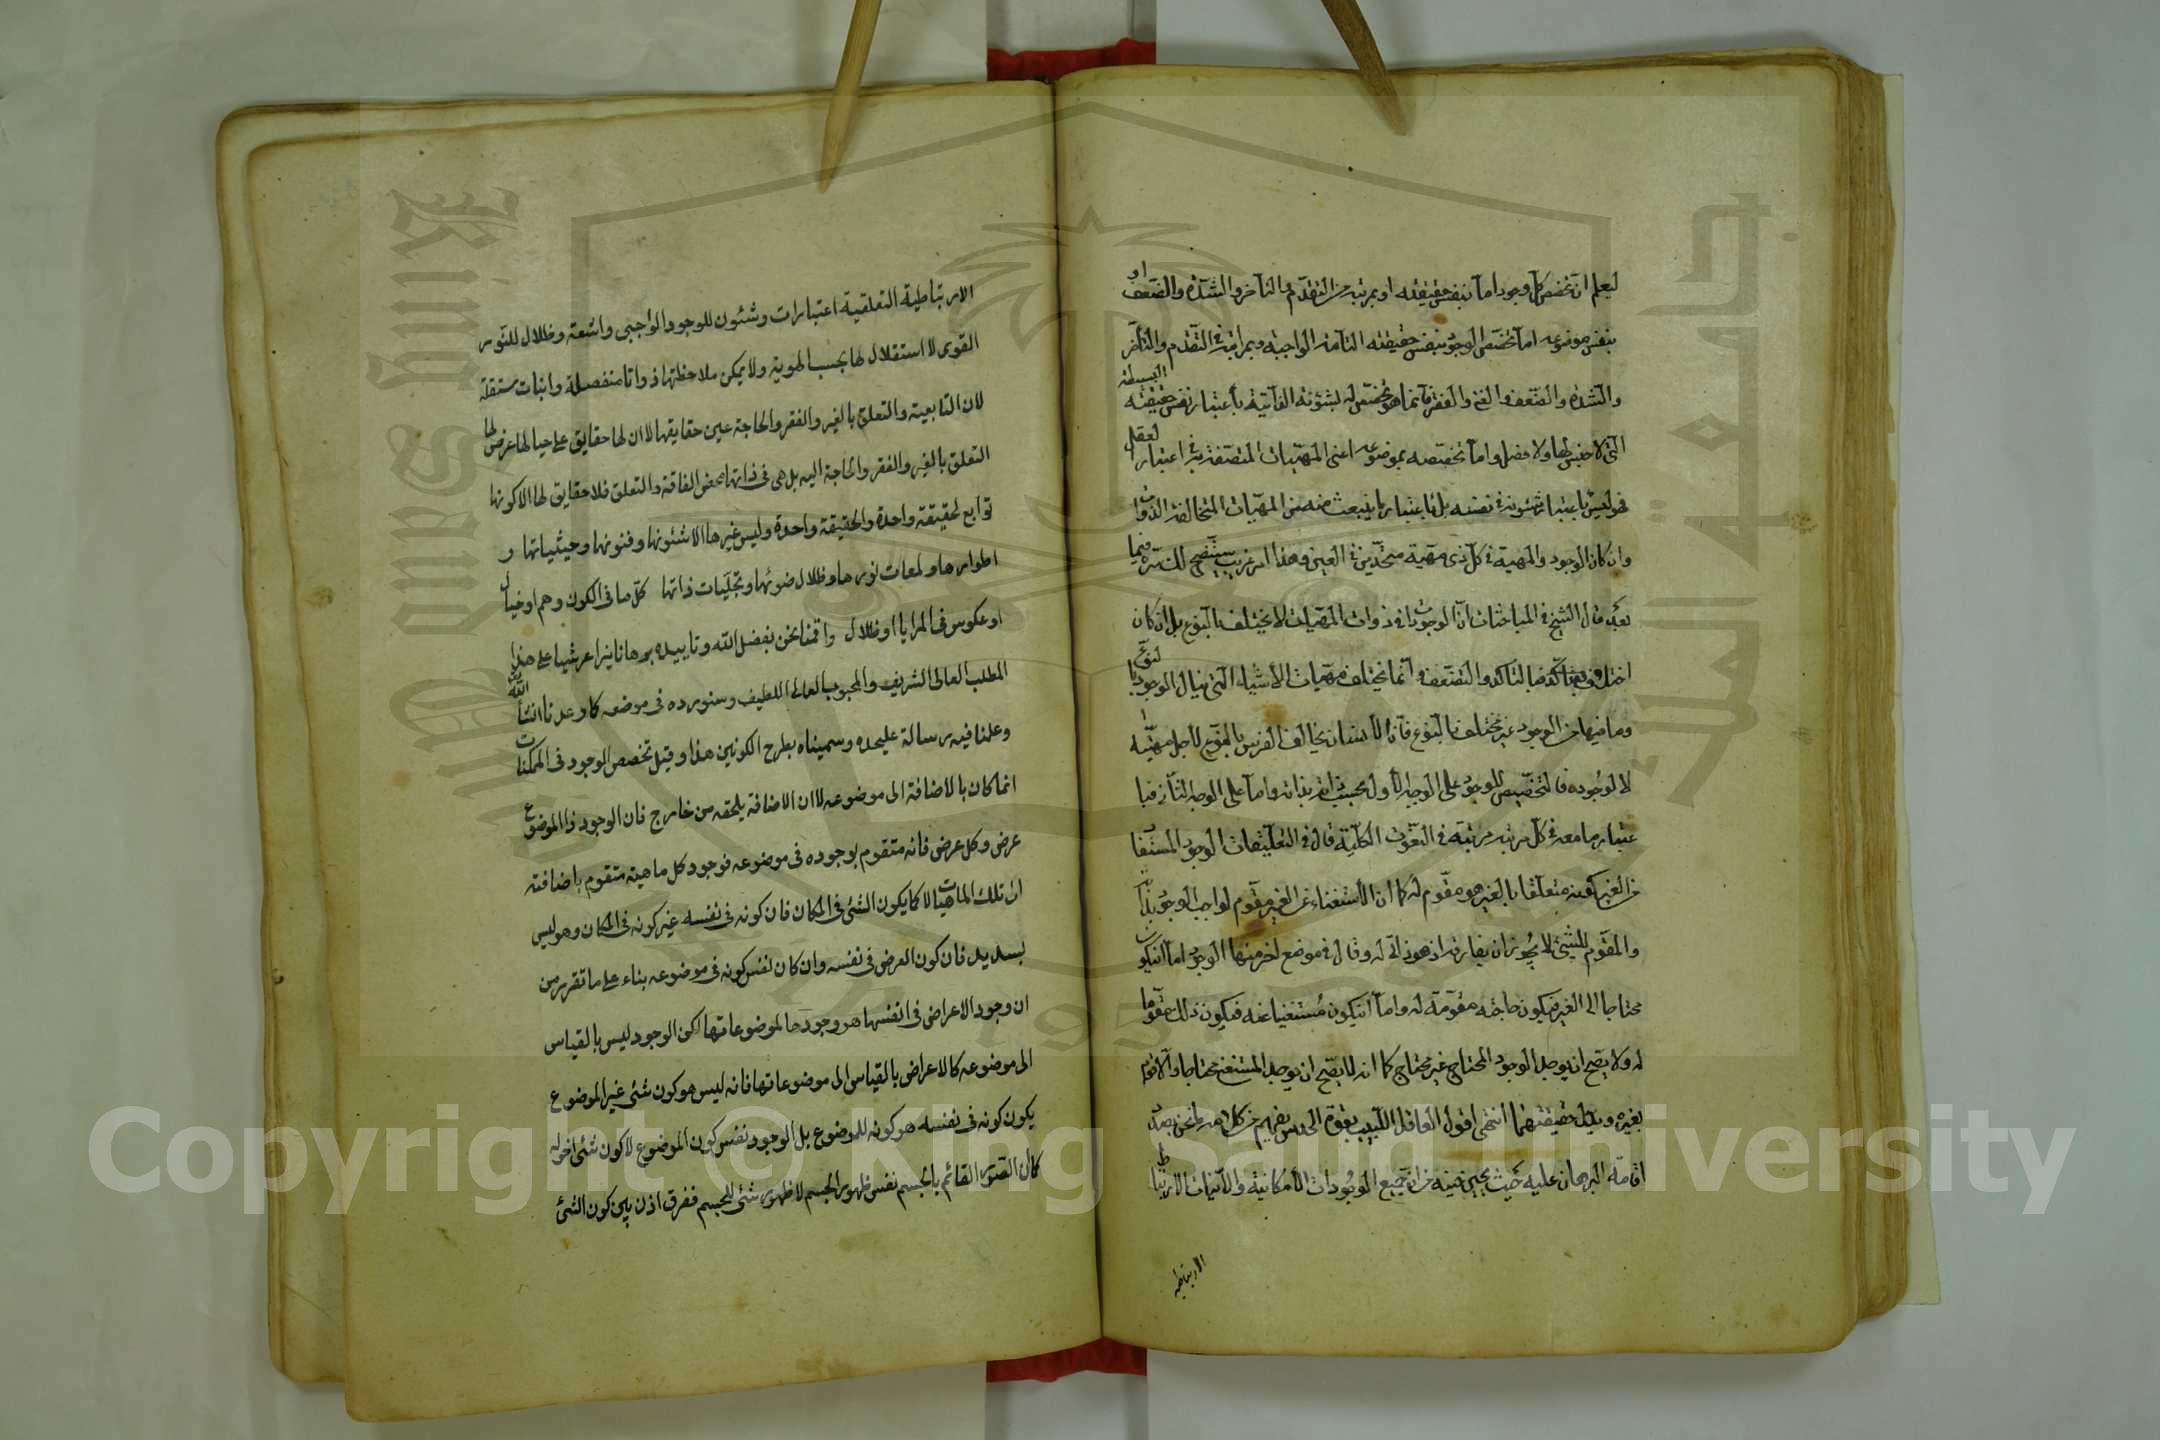 ليعلم ان تخصص كل وجود اما بنفس حقيقته او بمرتبة من التقدم والتاخر والشدة والضعف او
بنفس موضوعه اما تخصص الوجود بنفس حقيقته التامة الواجبة وبمراتبه في التقدم والتأخر
والشدة والضعف والغنى والفقر فانما هو تخصص له بشئونه الذاتية باعتبار نفس حقيقته البسيطة
التي لا جنس لها ولا فصل واما تخصصه بموضوعه اعنى المهيات المتصفة به في اعتبار العقل
فهو ليس باعتبار شئونه في نفسه بل باعتبار ما ينبعث عنه من المهيات المتخالفة الذوات
وان كان الوجود والمهية في كل ذى مهية متحدين في العين وهذا امر غريب سيتضح لك سره فيما
بعد قال الشيخ في المباحثات ان الوجود في ذوات المهيات لا يختلف بالنوع بل ان كان
اختلاف فبالتاكد والتضعف وانما يختلف مهيات الأشياء التى ينال الوجود بالنوع
وما فيها من الوجود غير مختلف بالنوع فان الأنسان يخالف الفرس بالنوع لأجل مهيته
لا لوجوده فالتخصيص للوجود على الوجه الأول بحسب ذاته بذاته واما على الوجه الثانى فبا
عتبار ما معه في كل مرتبة من النعوت الكلية قال في التعليقات الوجود المستفاد
من الغير كونه متعلقا بالغير هو مقوم له كما ان الأستغناء عن الغير مقوم لواجب الوجود بذاته
والمقوم للشىء لا يجوز ان يفارقه اذ هو ذاتى له وقال في موضع اخر منها الوجود اما ان يكون
محتاجا الى الغير فيكون حاجته مقومة له واما ان يكون مستغنيا عنه فيكون ذلك مقوما
له ولا يصح ان يوجد الوجود المحتاج غير محتاج كما انه لا يصح ان يوجد المستغنى محتاجا والا قوم
بغيره وبدل حقيقتهما انتهى اقول العاقل اللبيب بقوة الحدس يفهم من كلامه ما نحن بصدد
اقامة البرهان عليه حيث يحين حينه من ان جميع الوجودات الأمكانية والأنيات الارتباطية
الارتباطية
الارتباطية التعلقية اعتبارات وشئون للوجود الواجبى واشعة وظلال للنور
القوى لا استقلال لها بحسب الهوية ولا يمكن ملاحظتها ذواتا منفصلة وانيات مستقلة
لان التابعية والتعلق بالغير والفقر والحاجة عين حقايقها لا ان لها حقايق على حيالها عرض لها
التعلق بالغير والفقر والحاجة اليه بل هى فى ذاتها محض الفاقة والتعلق فلا حقايق لها الا كونها
توابع لحقيقة واحدة والحقيقة واحدة وليس غيرها الا شئونها وفنونها وحيثياتها و
اطوارها ولمعات نورها وظلال ضوئها وتجليات ذاتها كل ما فى الكون وهم او خيال
او عكوس فى المرايا او ظلال واقمنا نحن بفضل الله وتاييده برهانا نيرا عرشيا على هذا
المطلب العالى الشريف والمحبوب العالى اللطيف وسنورده فى موضعه كما وعدنا انشاء الله
وعملنا فيه رسالة عليحدة وسميناه بطرح الكونين هذا وقيل تخصص الوجود فى الممكنات
انما كان بالاضافة الى موضوعه لا ان الاضافة يلحقه من خارج فان الوجود ذا الموضوع
عرض وكل عرض فانه متقوم بوجوده فى موضوعه فوجود كل ماهية متقوم باضافته
الى تلك الماهيات لا كما يكون الشئ فى المكان فان كونه فى نفسه غير كونه فى المكان وهو ليس
بسديد فان كون العرض فى نفسه وان كان نفس كونه فى موضوعه بناء على ما تقرر من
ان وجود الاعراض فى انفسها هو وجودها لموضوعاتها لكن الوجود ليس بالقياس
الى موضوعه كالاعراض بالقياس الى موضوعاتها فانه ليس هو كون شئ غير الموضوع
يكون كونه فى نفسه هو كونه للموضوع بل الوجود نفس كون الموضوع لا كون شئ اخر له
كما ان الضوء القائم بالجسم نفس ظهور الجسم لا ظهور شئ للجسم ففرق اذن بين كون الشئ
Copyright © King Saud University
King Saud University
جامعة الملك سعود